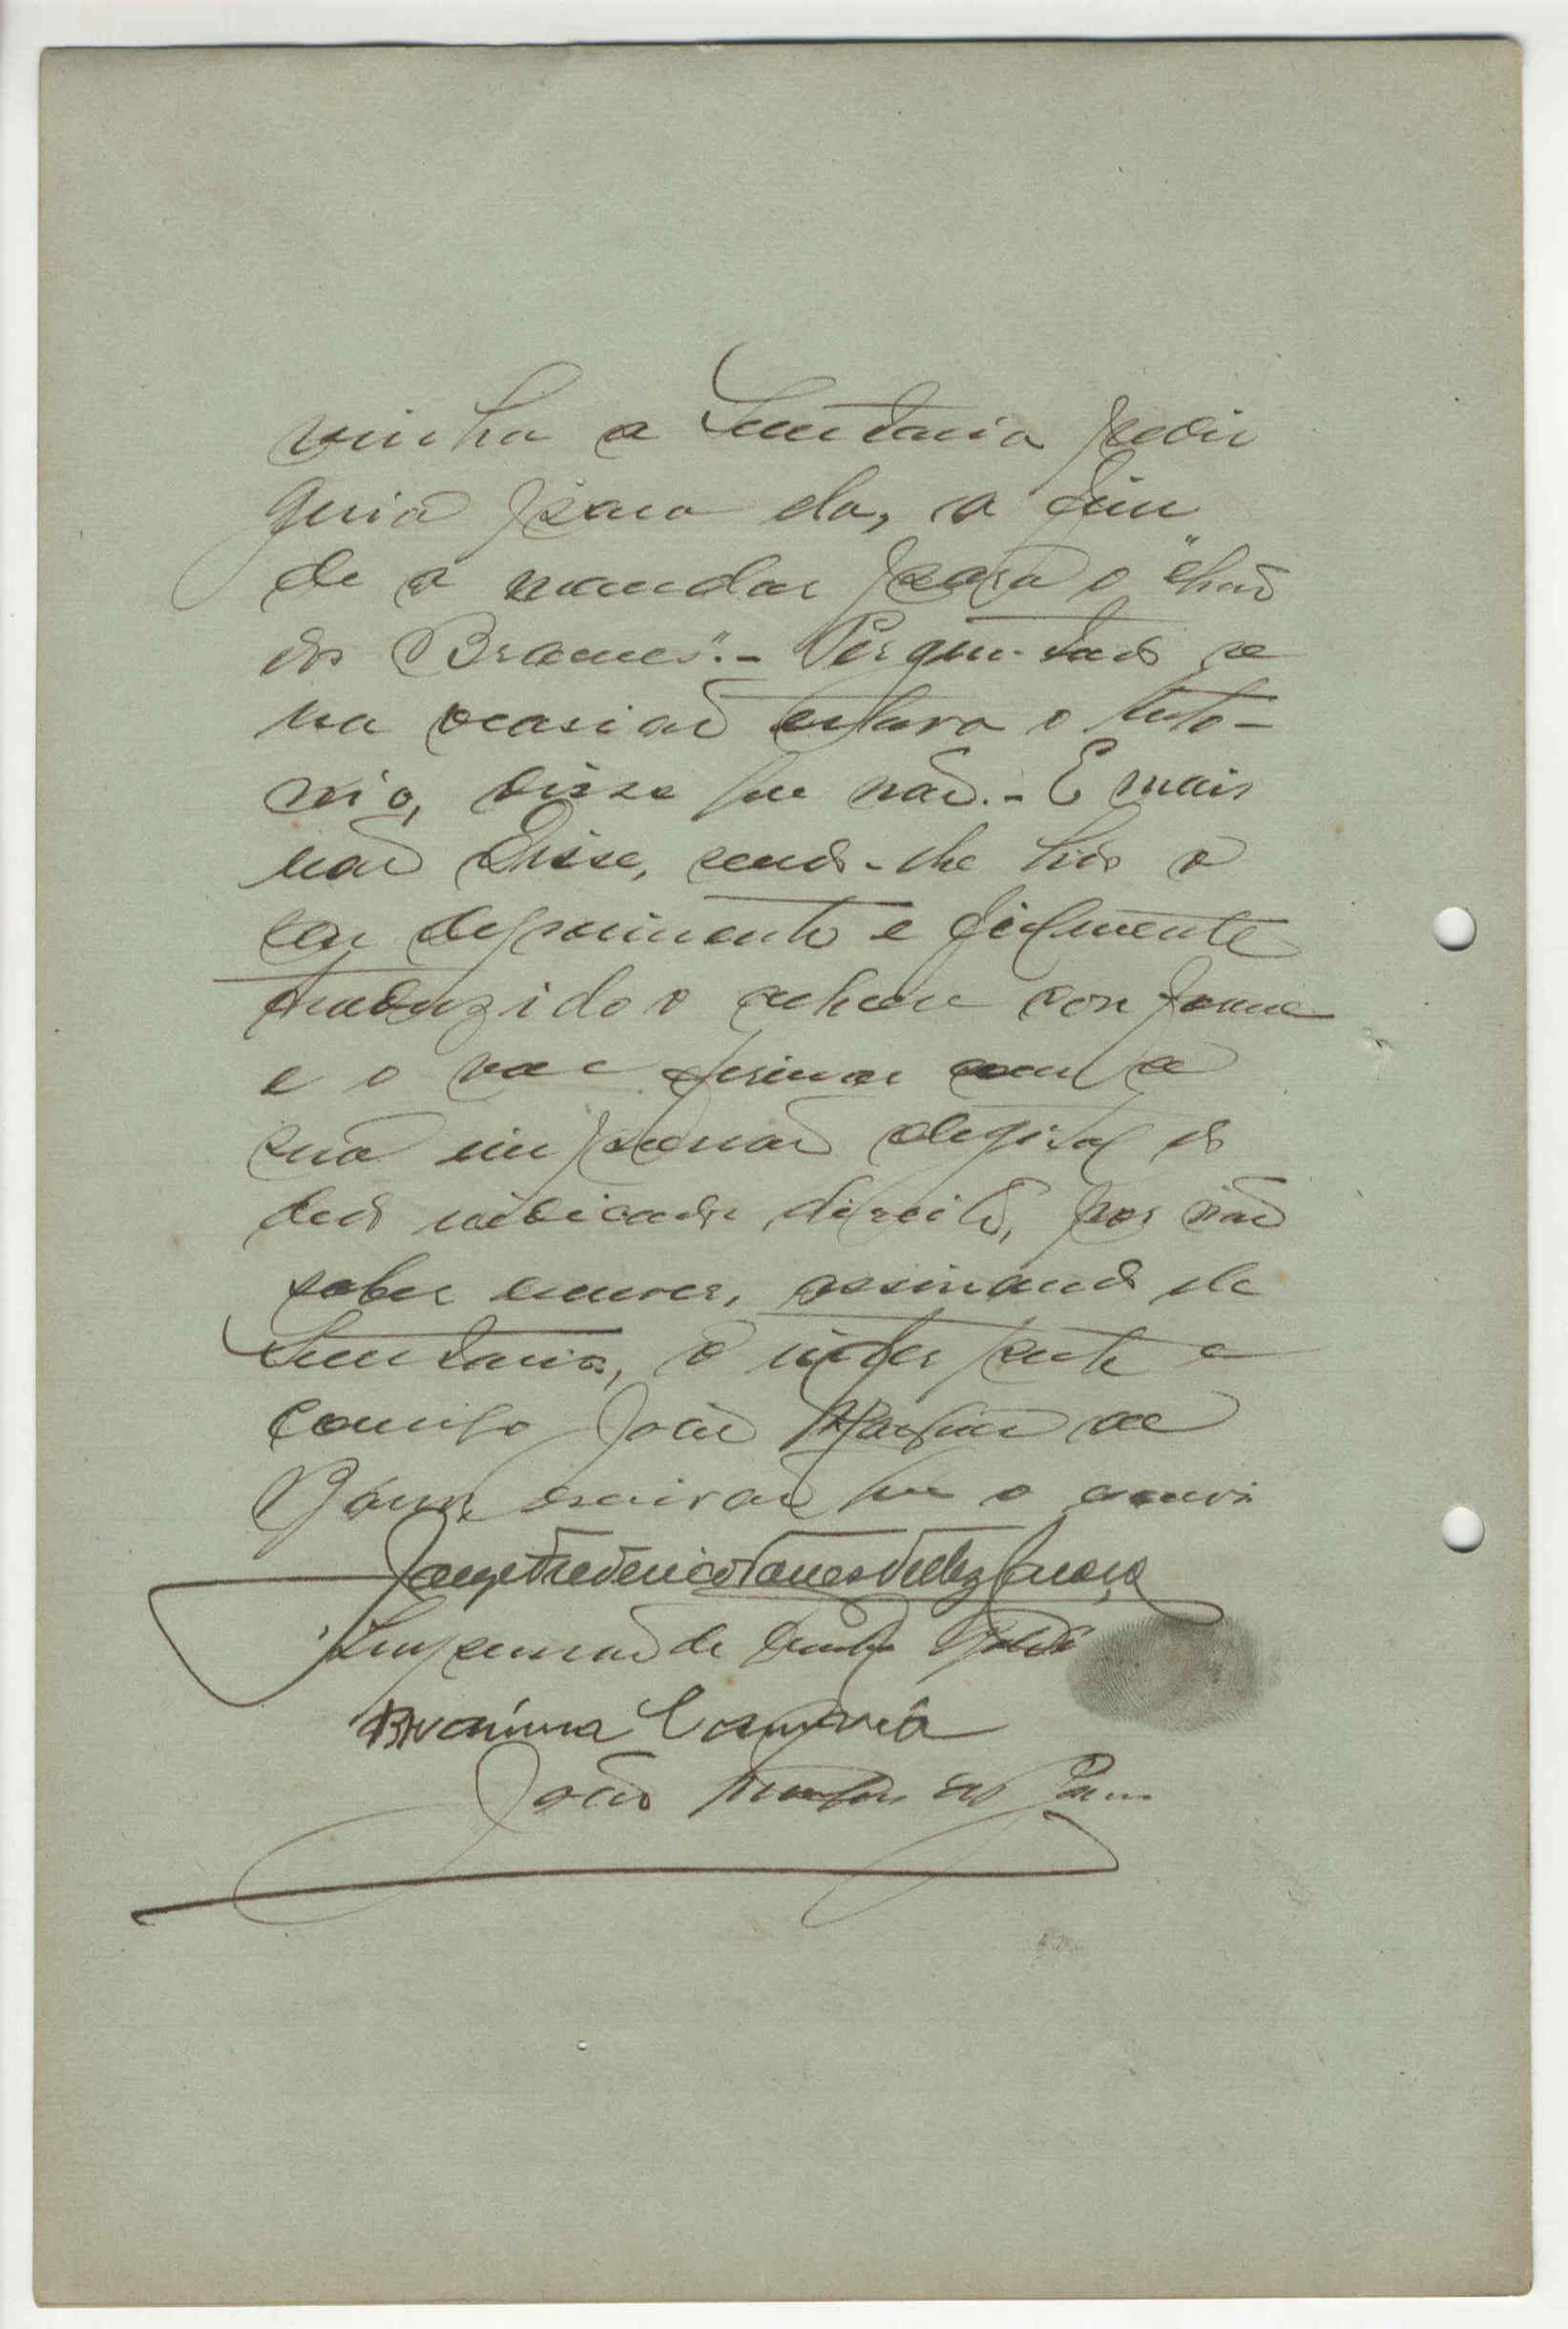 vinha a Secretaria pedir
guia para ela, a fim
de a mandar para o "chão
dos Brames".- Perguntado se
na ocasião estava o Anto-
nio, disse que não.- E mais
não disse, sendo-lhe lido o
seu depoimento e fielmente
traduzido o achou conforme
e o vae firmar com a
sua impressão degital do
dedo indicador direito, por não
saber escrever, assinando ele
Secretario, o interprete e
comigo João
escrivão que o escrevi
Jorge Frederico Torres Vellez Caroço
Impressão de
João